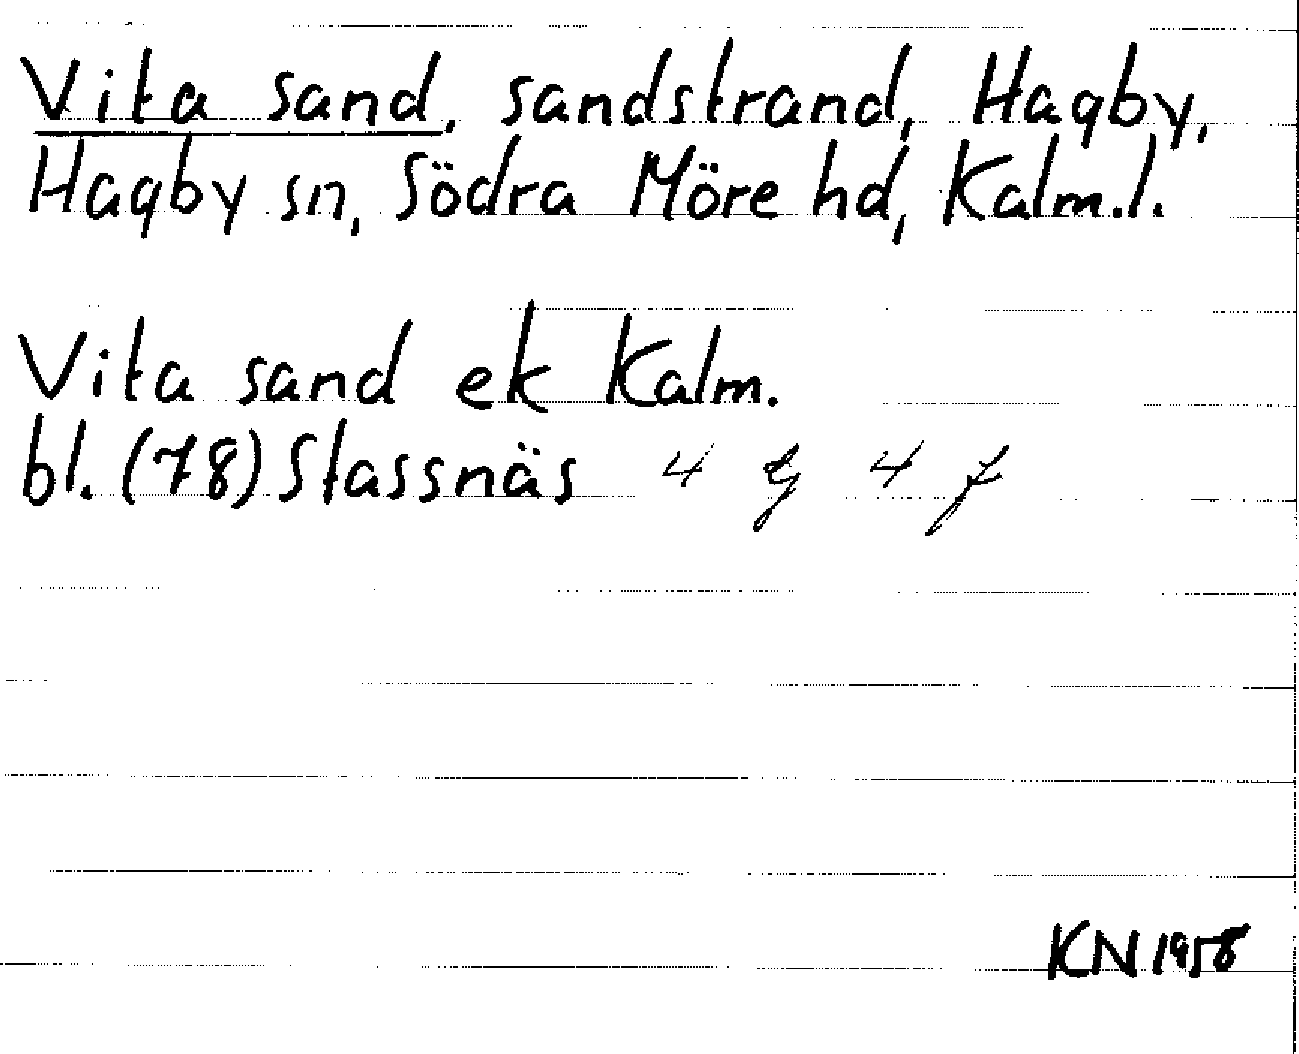 Vita sand, sandstrand, Hagby,
Hagby sn, Södra Möre hd, Kalm.l.
Vita sand ek Kalm.
bl. (78) Stassnäs 4 G 4 f
KN 1958